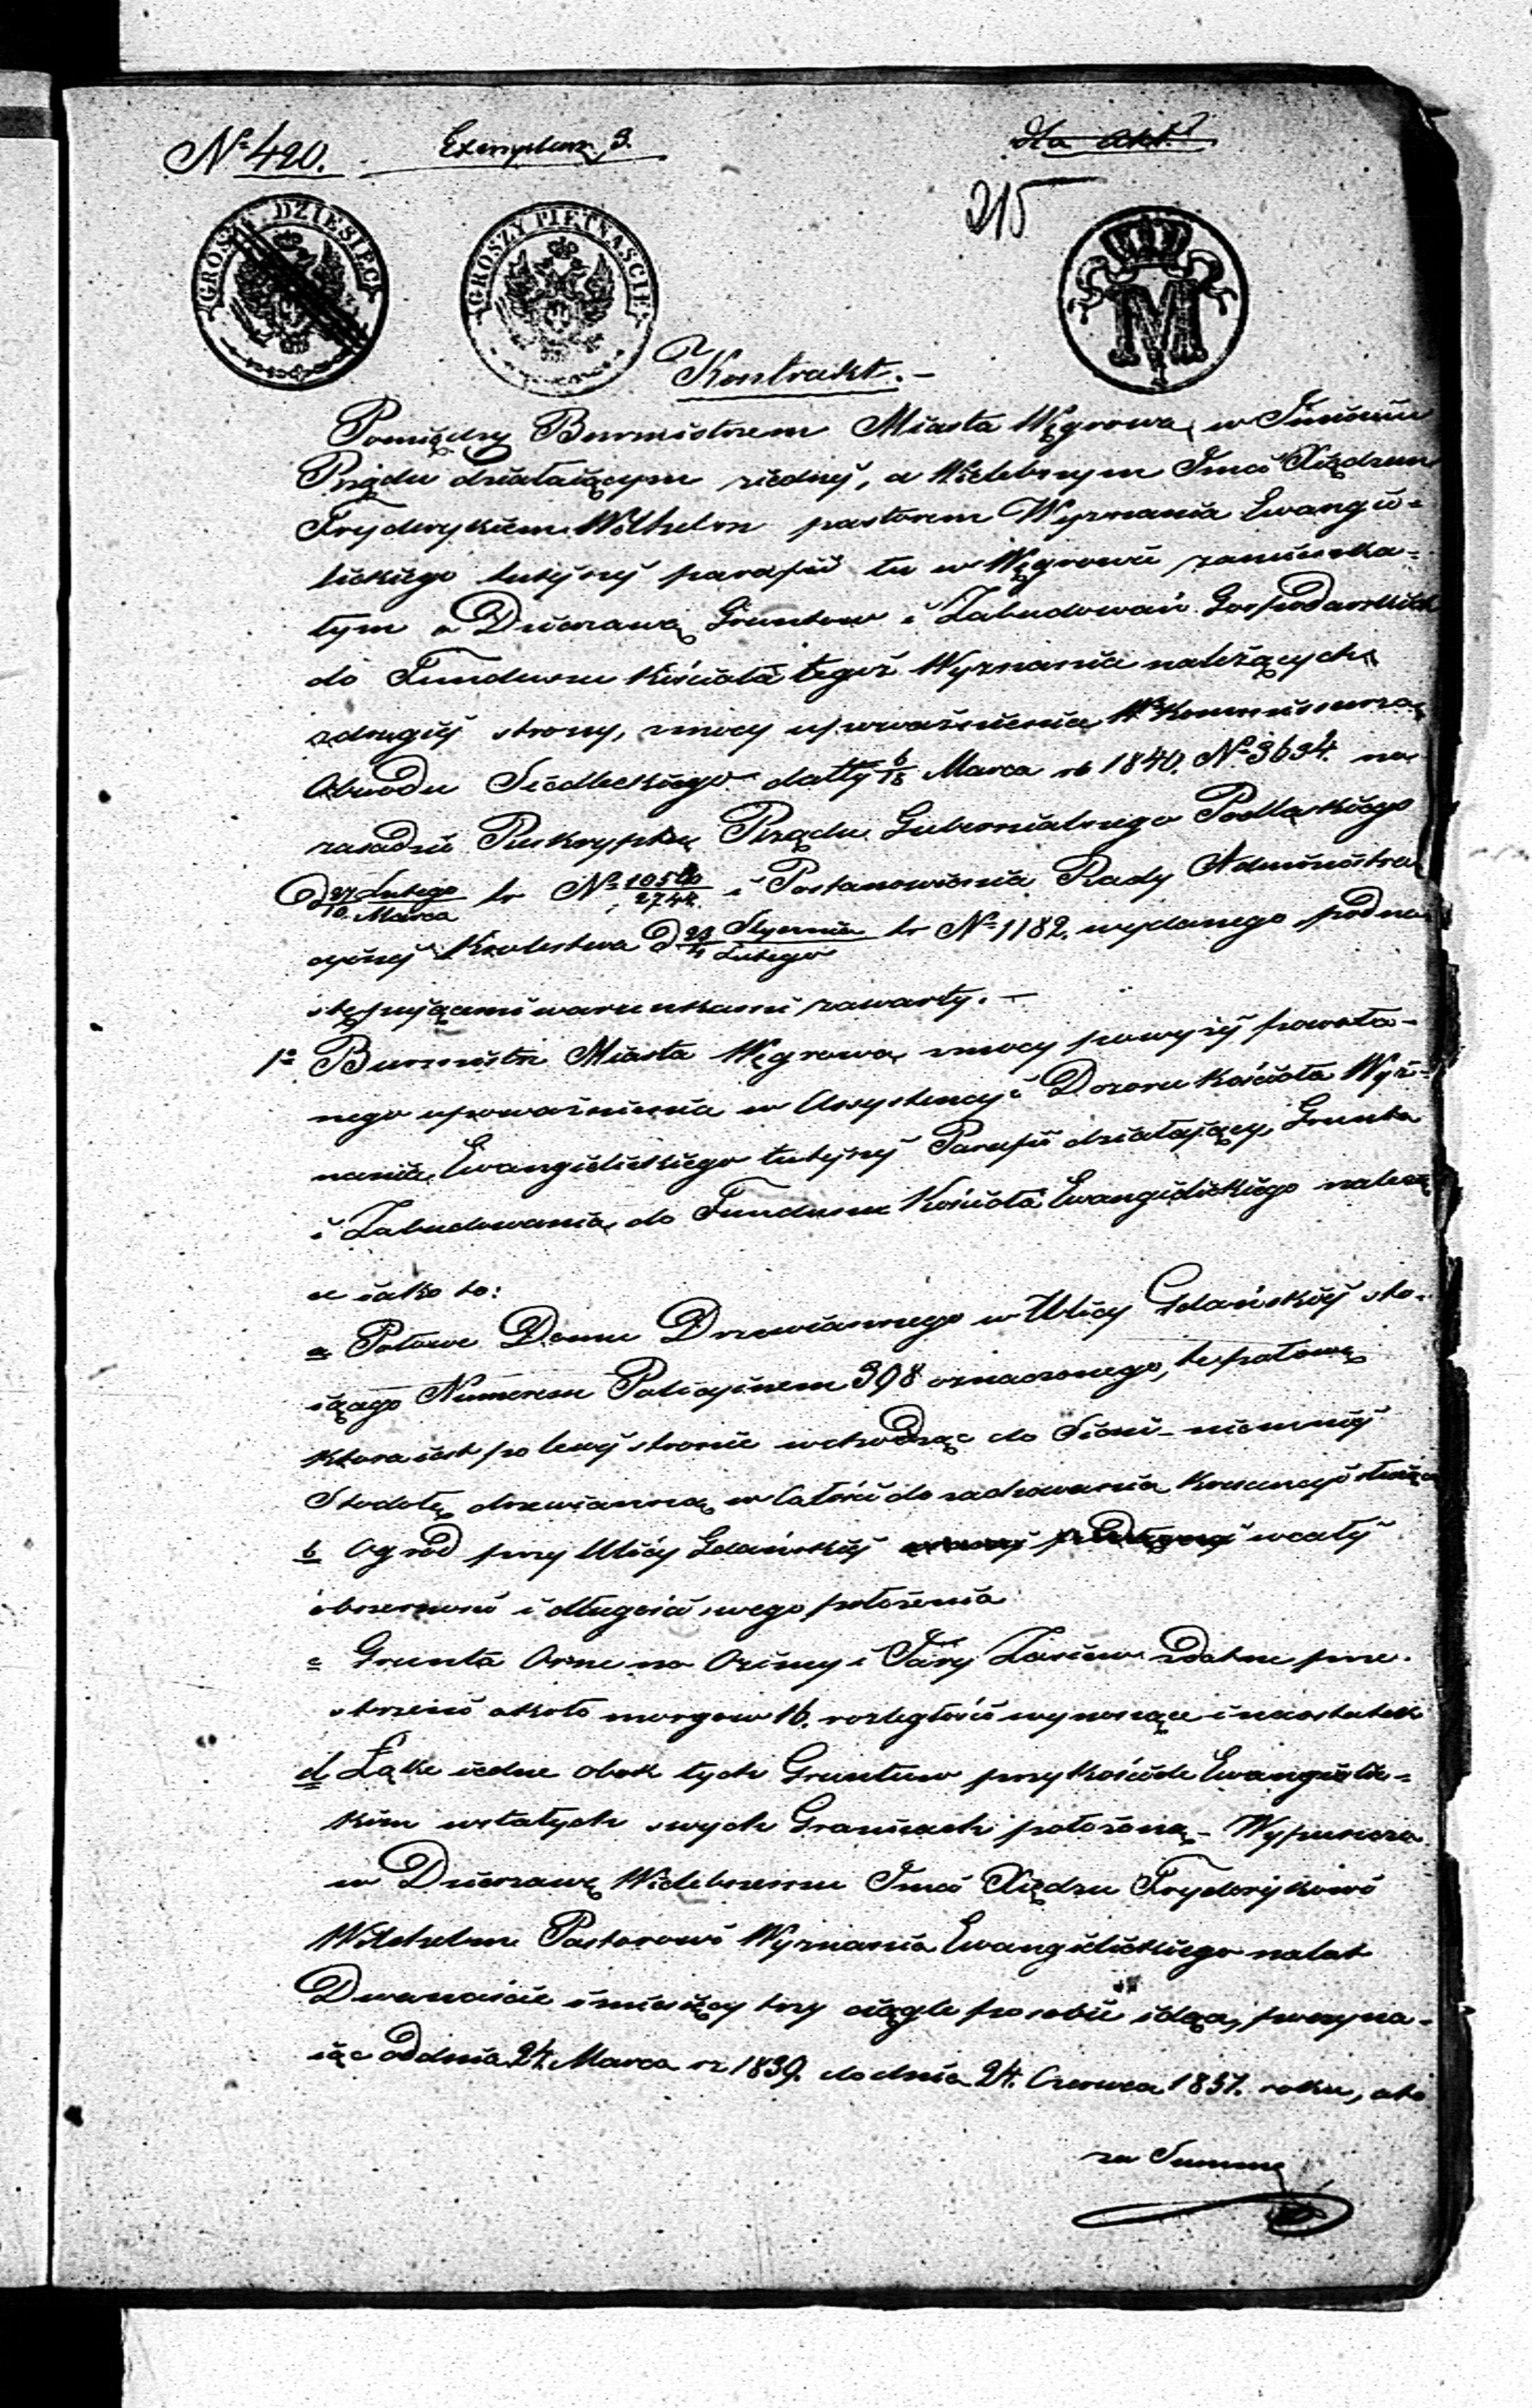 № 420. Exemplarz 3. dla Akt.
215
GROSZY DZIESIĘC
GROSZY PIĘTNAŚCIE
M
Kontrakt.—
Pomiędzy Burmistrzem Miasta Węgrowa, w Imieniu
Rządu działaiącym z iedney, a Wielebnym Jmci Xiędzem
Frydrykiem Wilhelm pastorem Wyznania Ewangie=
lickiego tuteyszey parafii tu w Węgrowie zamieszka=
łym o Dzierzawę Gruntow i Zabudowań Gospodarskich
do Funduszu Kościoła tegoż Wyznania należących
z drugiey strony, z mocy upoważnienia Wo Kommissarza
Obwodu Siedleckiego datty 6/18 Marca rb 1840. № 3634. na
zasadzie Reskryptu Rządu Gubernialnego Podlaskiego
D 27 Lutego/10 Marca br № 10500/2744 i Postanowienia Rady Administra
cyiney Krolestwa D Stycznia/Lutego br № 1182. wydanego pod na
stępuiącemi warunkami zawarty.—
1o Burmistrz Miasta Węgrowa z mocy powyżey powoła=
nego upoważnienia w Assystencyi Dozoru Kościoła Wyz=
nania Ewangielickiego tuteyszey Parafii działaiący, Grunta
i Zabudowania do Funduszu Kościoła Ewangielickiego należą
ce iako to:
a Połowe Domu Drzewianego w Ulicy Gdańskiey sto=
iącego Numerem Policyinem 398 oznaczonego, tę połowę
ktora iest po lewey stronie wchodząc do Sieni – niemniey
Stodołę drzewianną w Całości do zachowania Krescencyi służącą
b Ogród przy Ulicy Gdańskiey w całey
obszerności i długości swego położenia
c Grunta Orne na Oziminy i Jary Zasiew zdatne prze=
strzeni około morgow 16. rozległości wynoszące i nareszcie
d Łąkę iedne obok tych Gruntow przy Kościele Ewangielic=
kim w stałych swych Granicach położoną – Wypuszcza
w Dzierzawę Wielebnemu Jmci Xiędzu Frydrykowi
Wilchelm Pastorowi Wyznania Ewangielickiego na lat
Dwanaście i miesięcy trzy ciągle po sobie idące, poczyna=
iąc od dnia 24. Marca rz 1839. do dnia 24. Czerwca 1851. roku, a to
za Summę